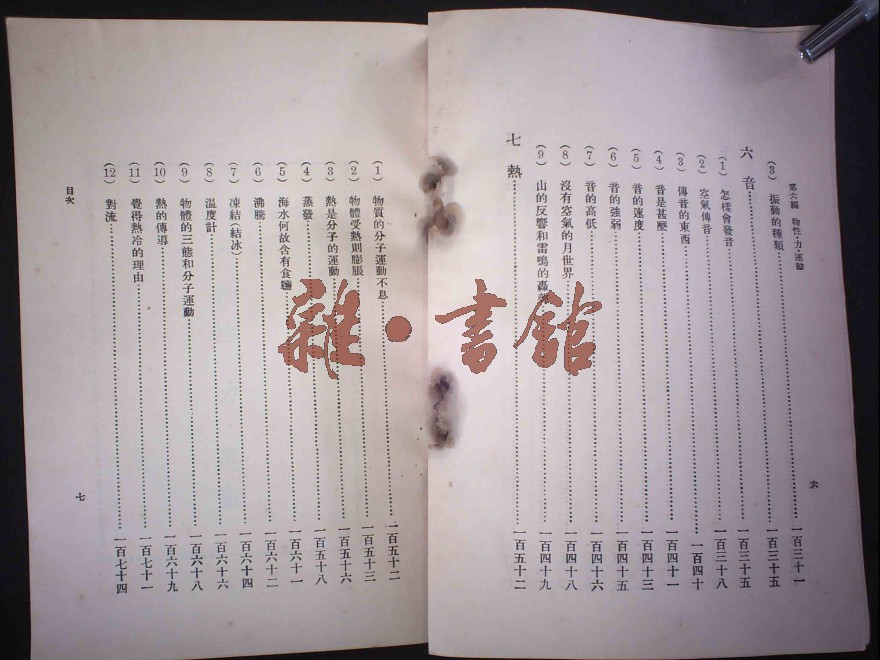 第六編 物性·力·運動
(3) 振動的種類 一百三十一
六 音 一百三十五
(1) 怎樣會發音 一百三十五
(2) 空氣傳音 一百三十八
(3) 傳音的東西 一百四十
(4) 音是甚麼 一百四十一
(5) 音的速度 一百四十三
(6) 音的強弱 一百四十五
(7) 音的高低 一百四十六
(8) 沒有空氣的月世界 一百四十八
(9) 山的反響和雷鳴的轟 一百四十九
七 熱 一百五十二
六
(1) 物質的分子運動不息 一百五十二
(2) 物體受熱則膨脹 一百五十三
(3) 熱是分子的運動 一百五十六
(4) 蒸發 一百五十八
(5) 海水何故含有食鹽 一百六十一
(6) 沸騰 一百六十二
(7) 凍結(結冰) 一百六十四
(8) 溫度計 一百六十六
(9) 物體的三態和分子運動 一百六十八
(10) 熱的傳導 一百六十九
(11) 覺得熱冷的理由 一百七十一
(12) 對流 一百七十四
目次
七
雜·書館